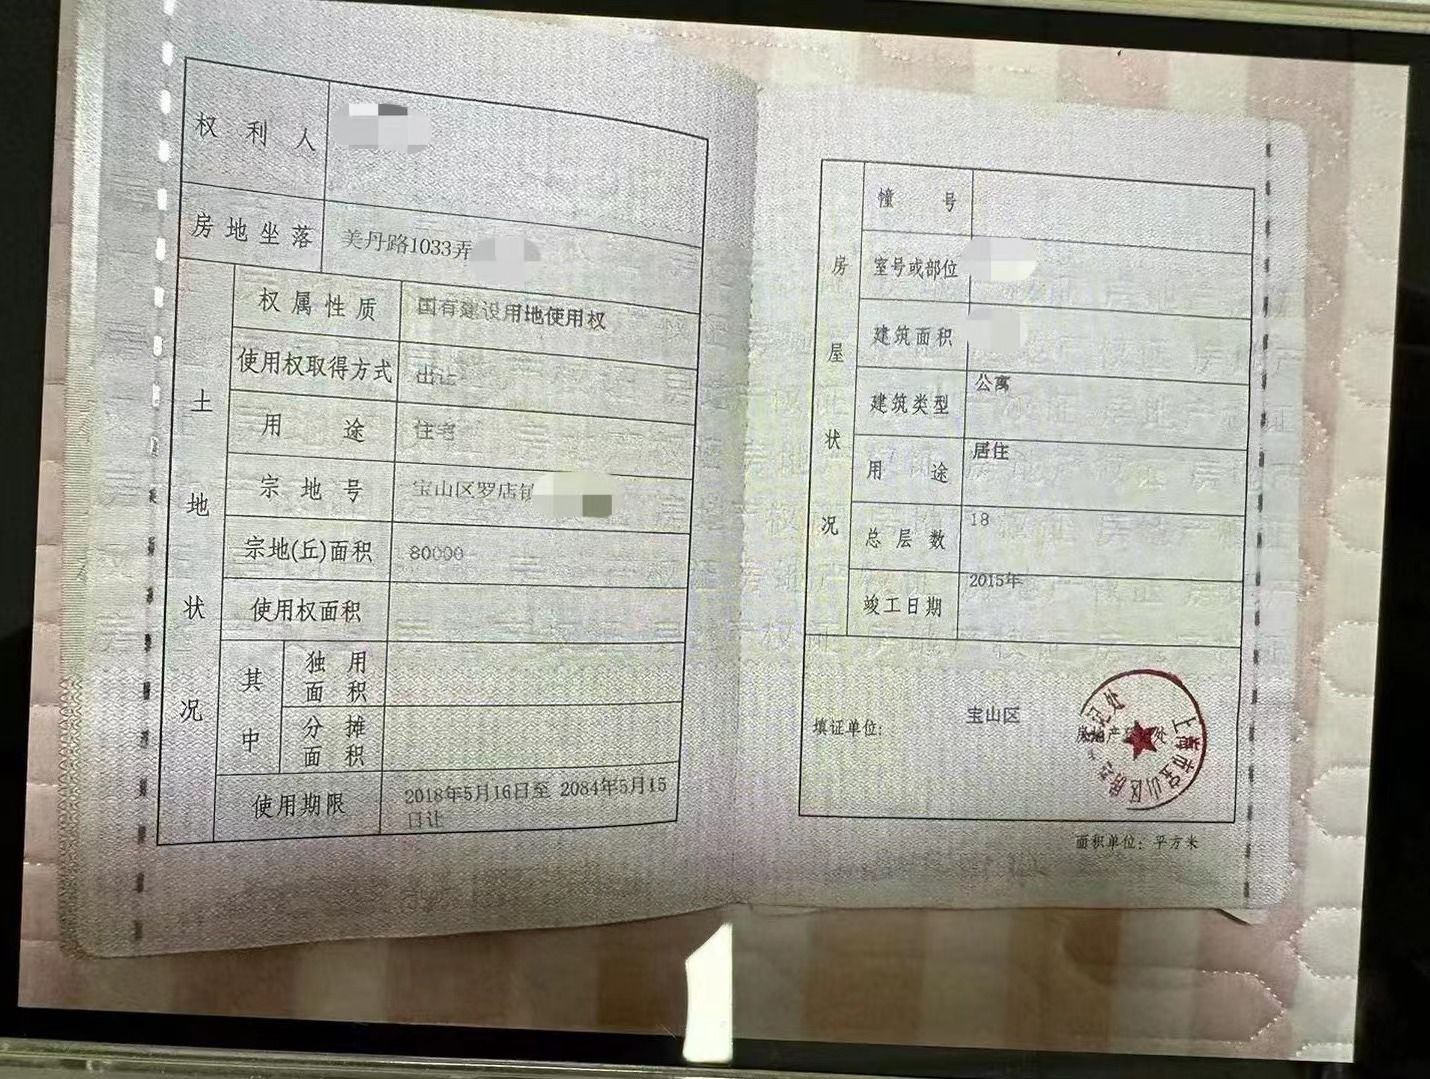 权利人
房地坐落 美丹路1033弄
土地状况
权属性质 国有建设用地使用权
使用权取得方式 出让
用途 住宅
宗地号 宝山区罗店镇
宗地(丘)面积 80000
使用权面积
其中
独用面积
分摊面积
使用期限 2018年5月16日至 2084年5月15
日止
房屋状况
幢号
室号或部位
建筑面积
建筑类型 公寓
用途 居住
总层数 18
竣工日期 2015年
填证单位: 宝山区
上海市宝山区
登记处
面积单位: 平方米